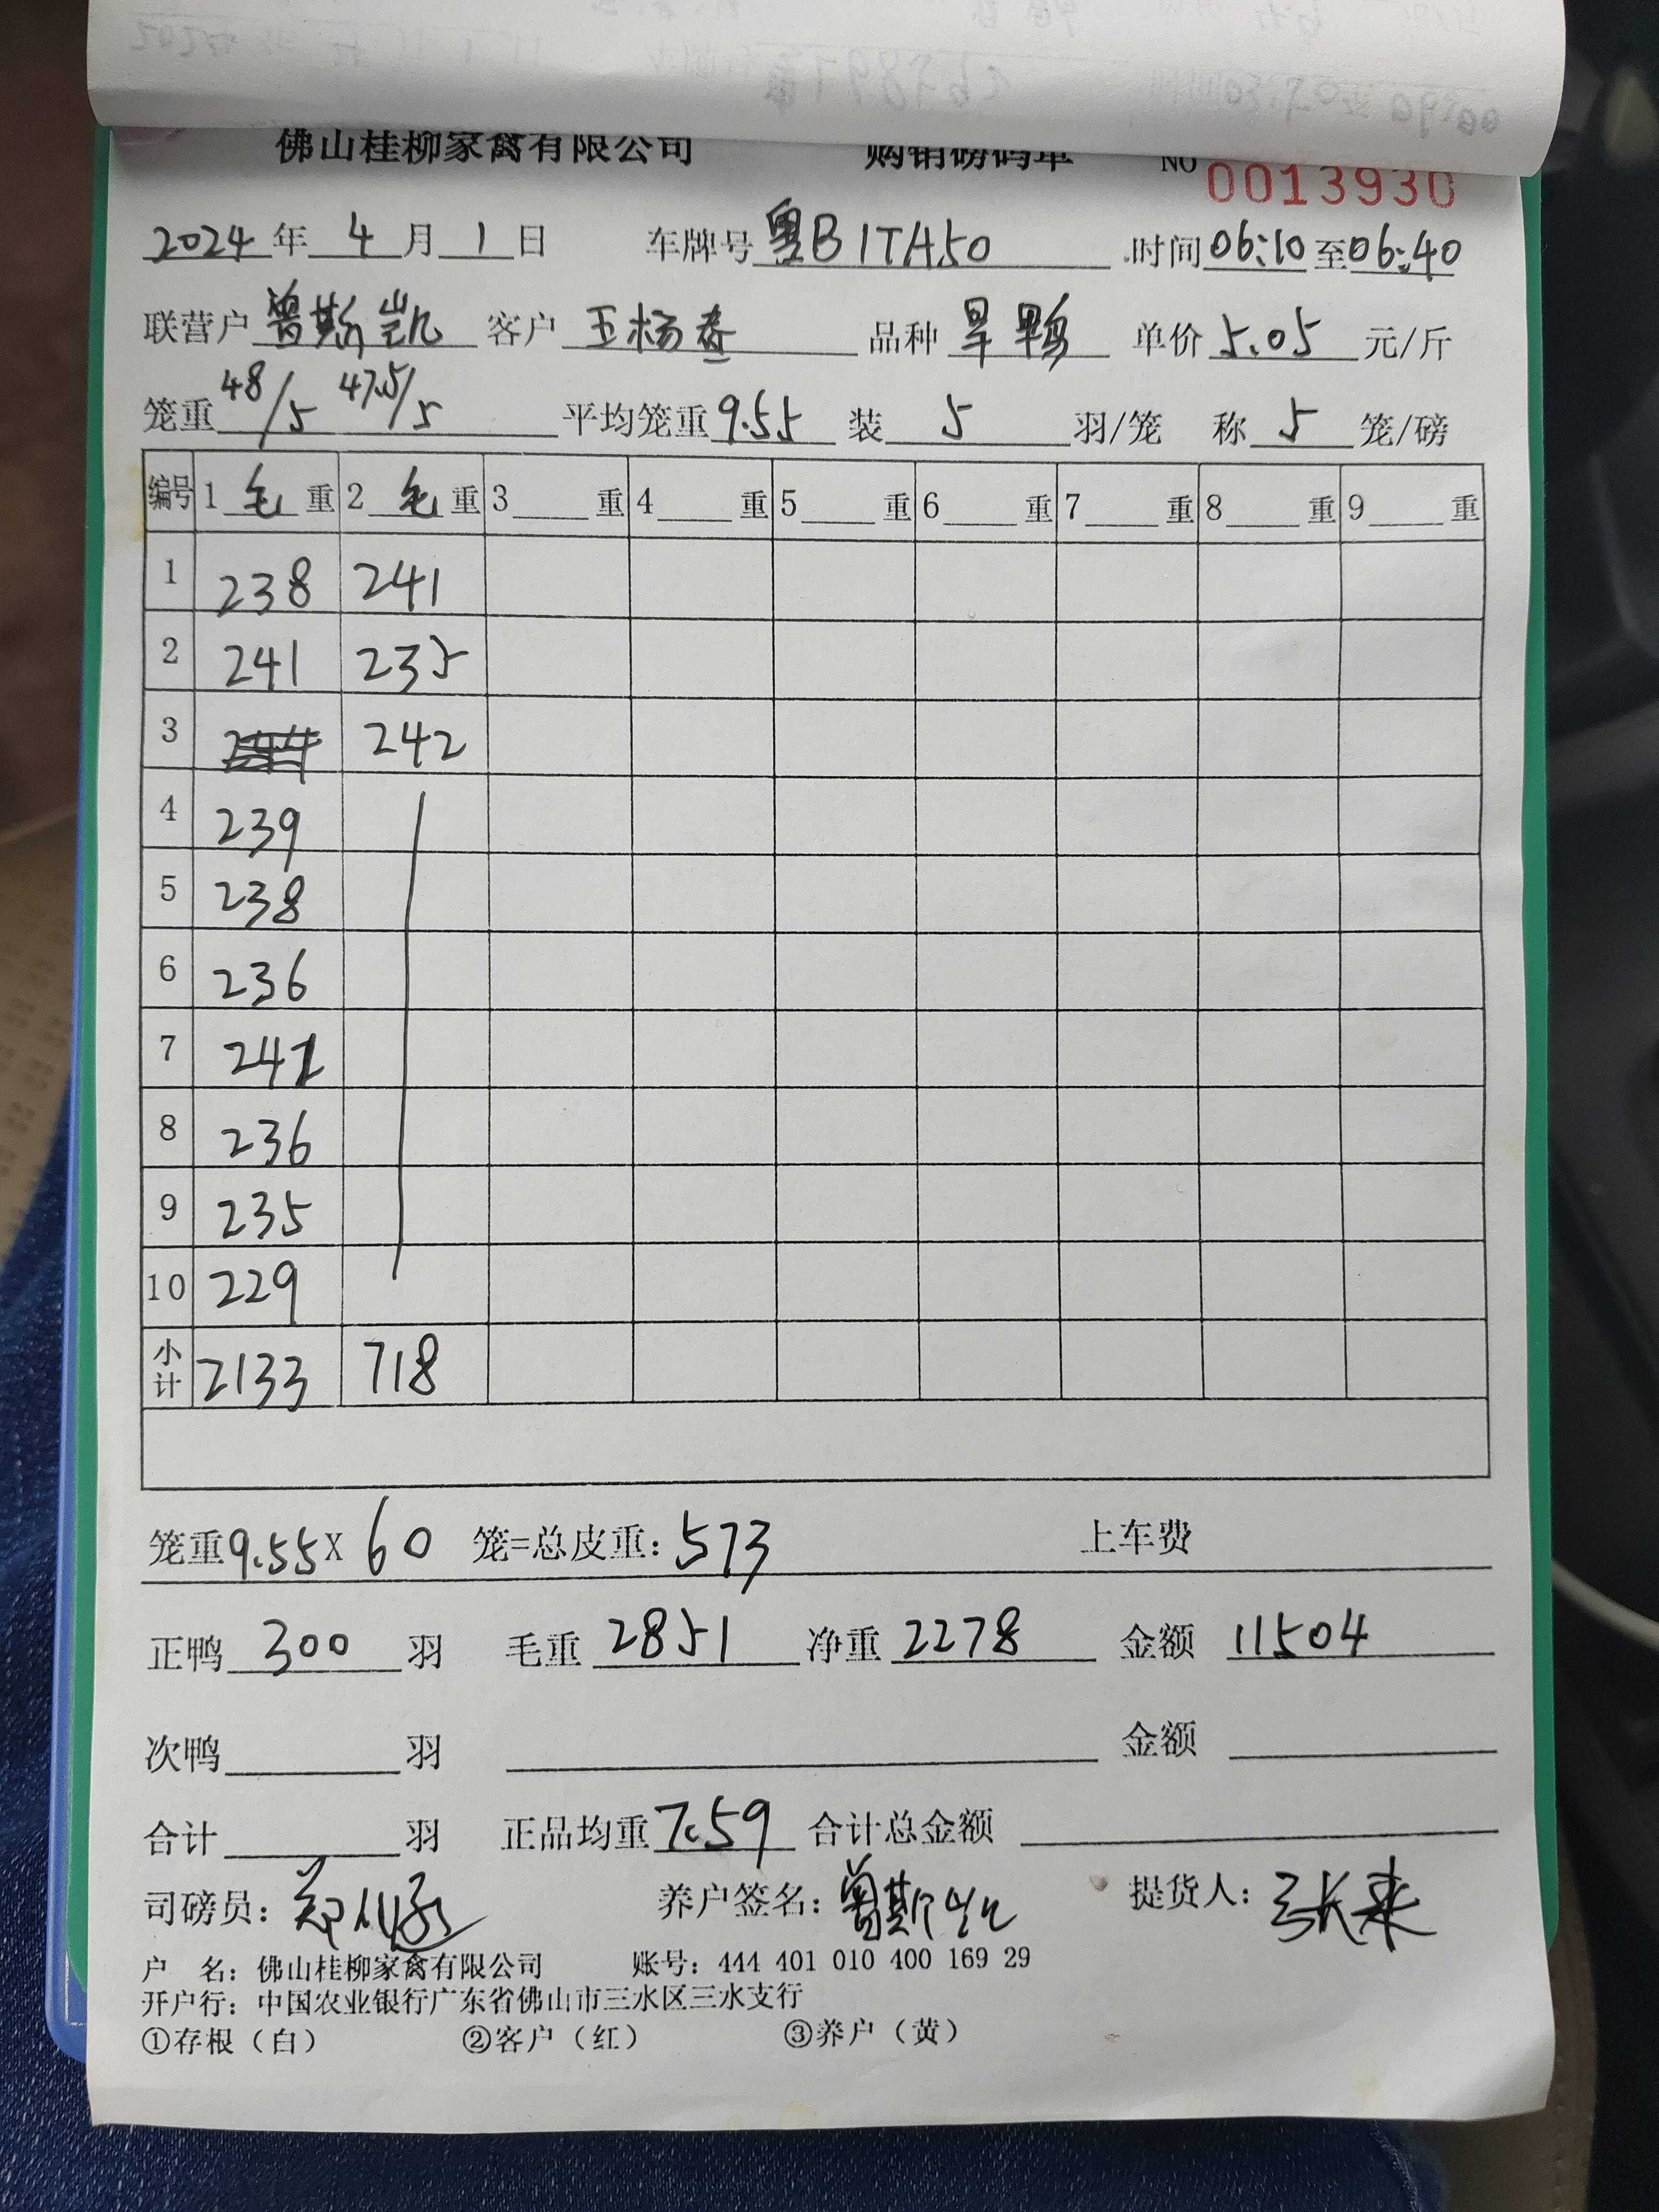 佛山桂柳家禽有限公司 购销磅码单 NO 0013930
2024年 4月 1日 车牌号 粤B1TA50 时间 06:10 至 06:40
联营户 曾斯凯 客户 王杨春 品种 旱鸭 单价 5.05 元/斤
笼重 48/5 47.5/5 平均笼重 9.55 装 5 羽/笼 称 5 笼/磅
编号 1 毛 重 2 毛 重 3 重 4 重 5 重 6 重 7 重 8 重 9 重
1 238 241
2 241 235
3 242
4 239
5 238
6 236
7 241
8 236
9 235
10 229
小计 2133 718
笼重9.55X 60 笼=总皮重: 573 上车费
正鸭 300 羽 毛重 2851 净重 2278 金额 11504
次鸭 羽 金额
合计 羽 正品均重 7.59 合计总金额
司磅员: 养户签名: 曾斯凯 提货人:
户 名: 佛山桂柳家禽有限公司 账号: 444 401 010 400 169 29
开户行: 中国农业银行广东省佛山市三水区三水支行
①存根(白) ②客户(红) ③养户(黄)